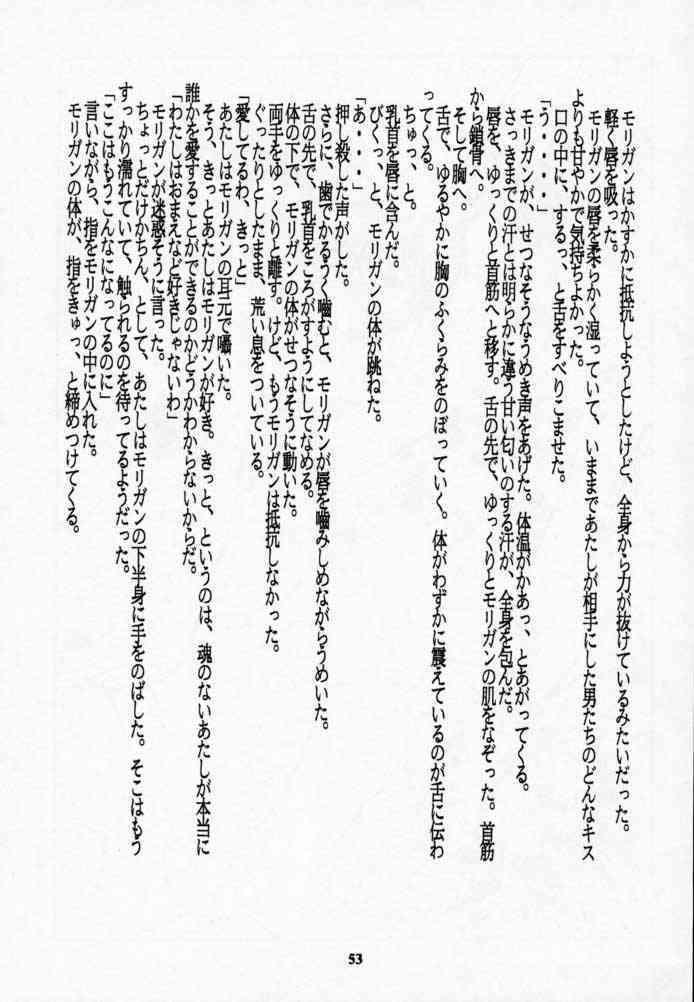 モリガンはかすかに抵抗しようとしたけど、全身から力が抜けているみたいだった。
軽く唇を吸った。
モリガンの唇を柔らかく湿っていて、いままであたしが相手にした男たちのどんなキス
よりも甘やかで気持ちよかった。
口の中に、するっ、と舌をすべりこませた。
「う・・・・」
モリガンが、せつなそうなうめき声をあげた。体温がかあっ、とあがってくる。
さっきまでの汗とは明らかに違う甘い匂いのする汗が、全身を包んだ。
唇を、ゆっくりと首筋へと移す。舌の先で、ゆっくりとモリガンの肌をなぞった。首筋
から鎖骨へ。
そして胸へ。
舌で、ゆるやかに胸のふくらみをのぼっていく。体がわずかに震えているのが舌に伝わ
ってくる。
ちゅっ、と。
乳首を唇に含んだ。
びくっ、と、モリガンの体が跳ねた。
「あ・・・」
押し殺した声がした。
さらに、歯でかるうく噛むと、モリガンが唇を噛みしめながらうめいた。
舌の先で、乳首をころがすようにしてなめる。
体の下で、モリガンの体がせつなそうに動いた。
両手をゆっくりと離す。けど、もうモリガンは抵抗しなかった。
ぐったりとしたまま、荒い息をついている。
「愛してるわ、きっと」
あたしはモリガンの耳元で囁いた。
そう、きっとあたしはモリガンが好き。きっと、というのは、魂のないあたしが本当に
誰かを愛することができるのかどうかわからないからだ。
「わたしはおまえなど好きじゃないわ」
モリガンが迷惑そうに言った。
ちょっとだけかちん、として、あたしはモリガンの下半身に手をのばした。そこはもう
すっかり濡れていて、触られるのを待ってるようだった。
「ここはもうこんなになってるのに」
言いながら、指をモリガンの中に入れた。
モリガンの体が、指をきゅっ、と締めつけてくる。
53